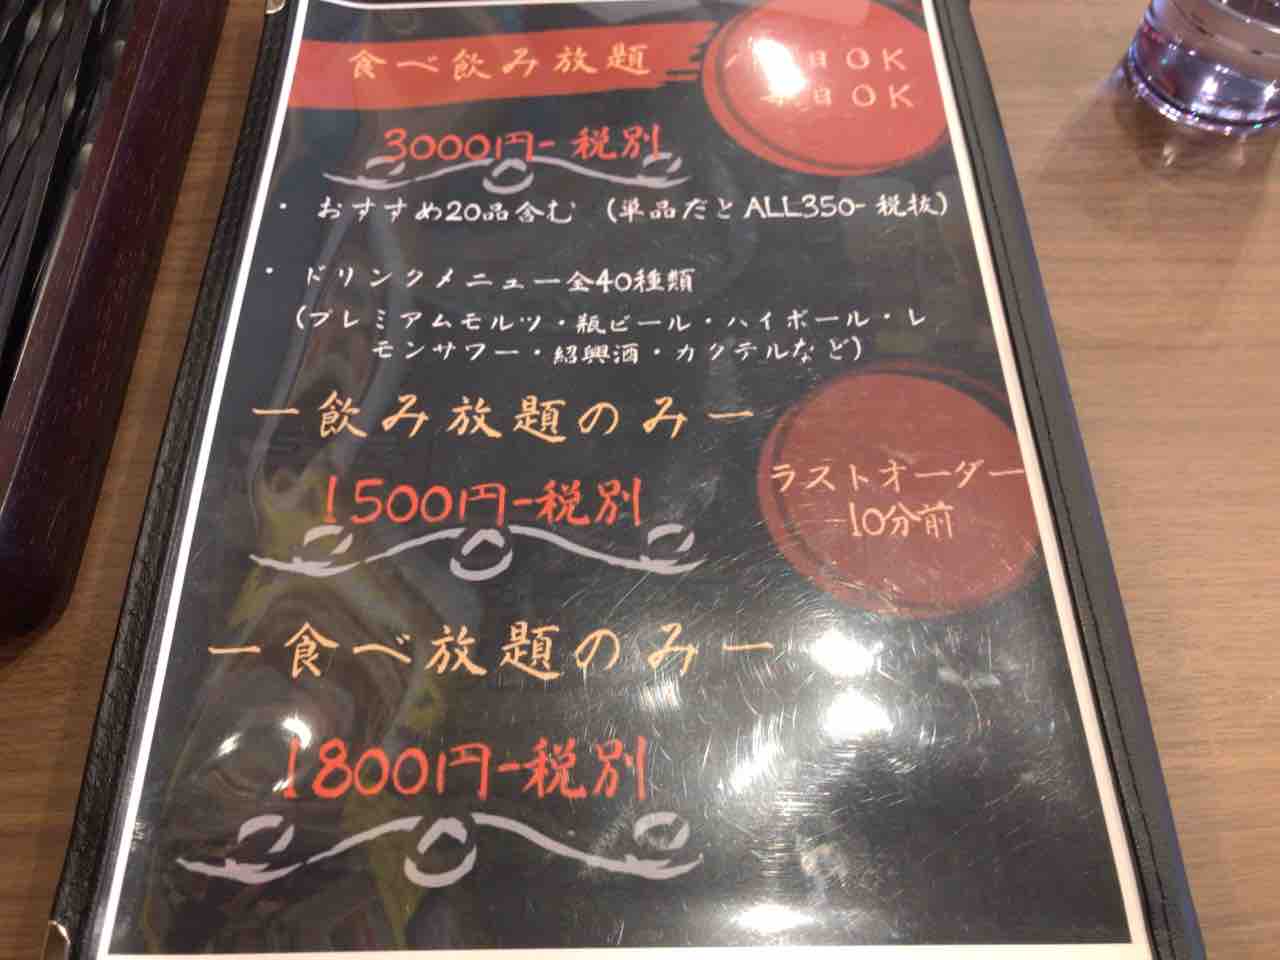 食べ飲み放題
日OK
日OK
3000円-税別
・おすすめ20品含む (単品だとALL350-税抜)
・ドリンクメニュー全40種類
(プレミアムモルツ・瓶ビール・ハイボール・レ
モンサワー・紹興酒・カクテルなど)
ー飲み放題のみー
1500円-税別
ラストオーダー
10分前
ー食べ放題のみー
1800円-税別